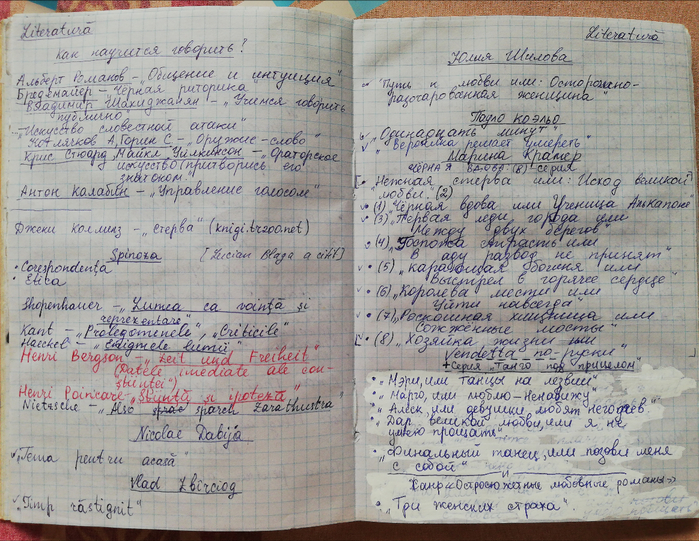 Literatură
Как научится говорить?
Альберт Романов – „Общение и интуиция"
Бредемайер – „Черная риторика"
Владимир Шахиджанян – „Учимся говорить
публично"
„Искусство словестной атаки"
Котлячков А, Горин С – „Оружие-слово"
Крис Стюард Майкл Уилкинсон – „Ораторское
искусство (притворись его
знатоком"
Антон Калабин – „Управление голосом"
Джеки коллинз – „стерва" (knigi.tr200.net)
Spinoza [Lucian Blaga a citit]
• Corespondența
• Etica
Shopenhauer – „Lumea ca voință și
reprezentare"
Kant – „Prolegomenele", „Criticile"
Haeckel – „Enigmele lumii"
Henri Bergson – „Zeit und Freiheit"
(Datele imediate ale con-
științei)
Henri Poincare „Știință și ipoteză"
Nietzsche – „Also sprach Zarathustra"
Nicolae Dabija
„Tema pentru acasă"
Vlad Zbîrciog
„Timp răstignit"
Literatură
Юлия Шилова
„Путь к любви или: Осторожно-
разочарованная женщина"
Пауло коэльо
„Одинадцать минут"
„Вероника решает умереть"
Марина Крамер
чёрная вдова (8) серия
„Нежная стерва или: Исход великой
любви" (2)
(1) „Чёрная вдова или Ученица Аль Капоне
(3) „Первая леди города или
Между двух берегов"
(4) „Госпожа страсть или
В аду развод не принят"
(5) „карающая богиня или
Выстрел в горячее сердце"
(6) „Королева мости или
Уйти навсегда"
(7) „Роскошная хищница или
Сожжённые мосты"
(8) „Хозяйка жизни или
Vendetta по-русски"
+ серия „Танго под прицелом"
• „Мэри, или танцы на лезвии"
• „Марго, или люблю-ненавижу"
• „Алекс, или девушки любят негодяев"
• „Дар великой любви, или я не
умею прощать"
„Финальный танец, или позови меня
с собой"
Жанр «Остросюжетные любовные романы»
• „Три женских страха"